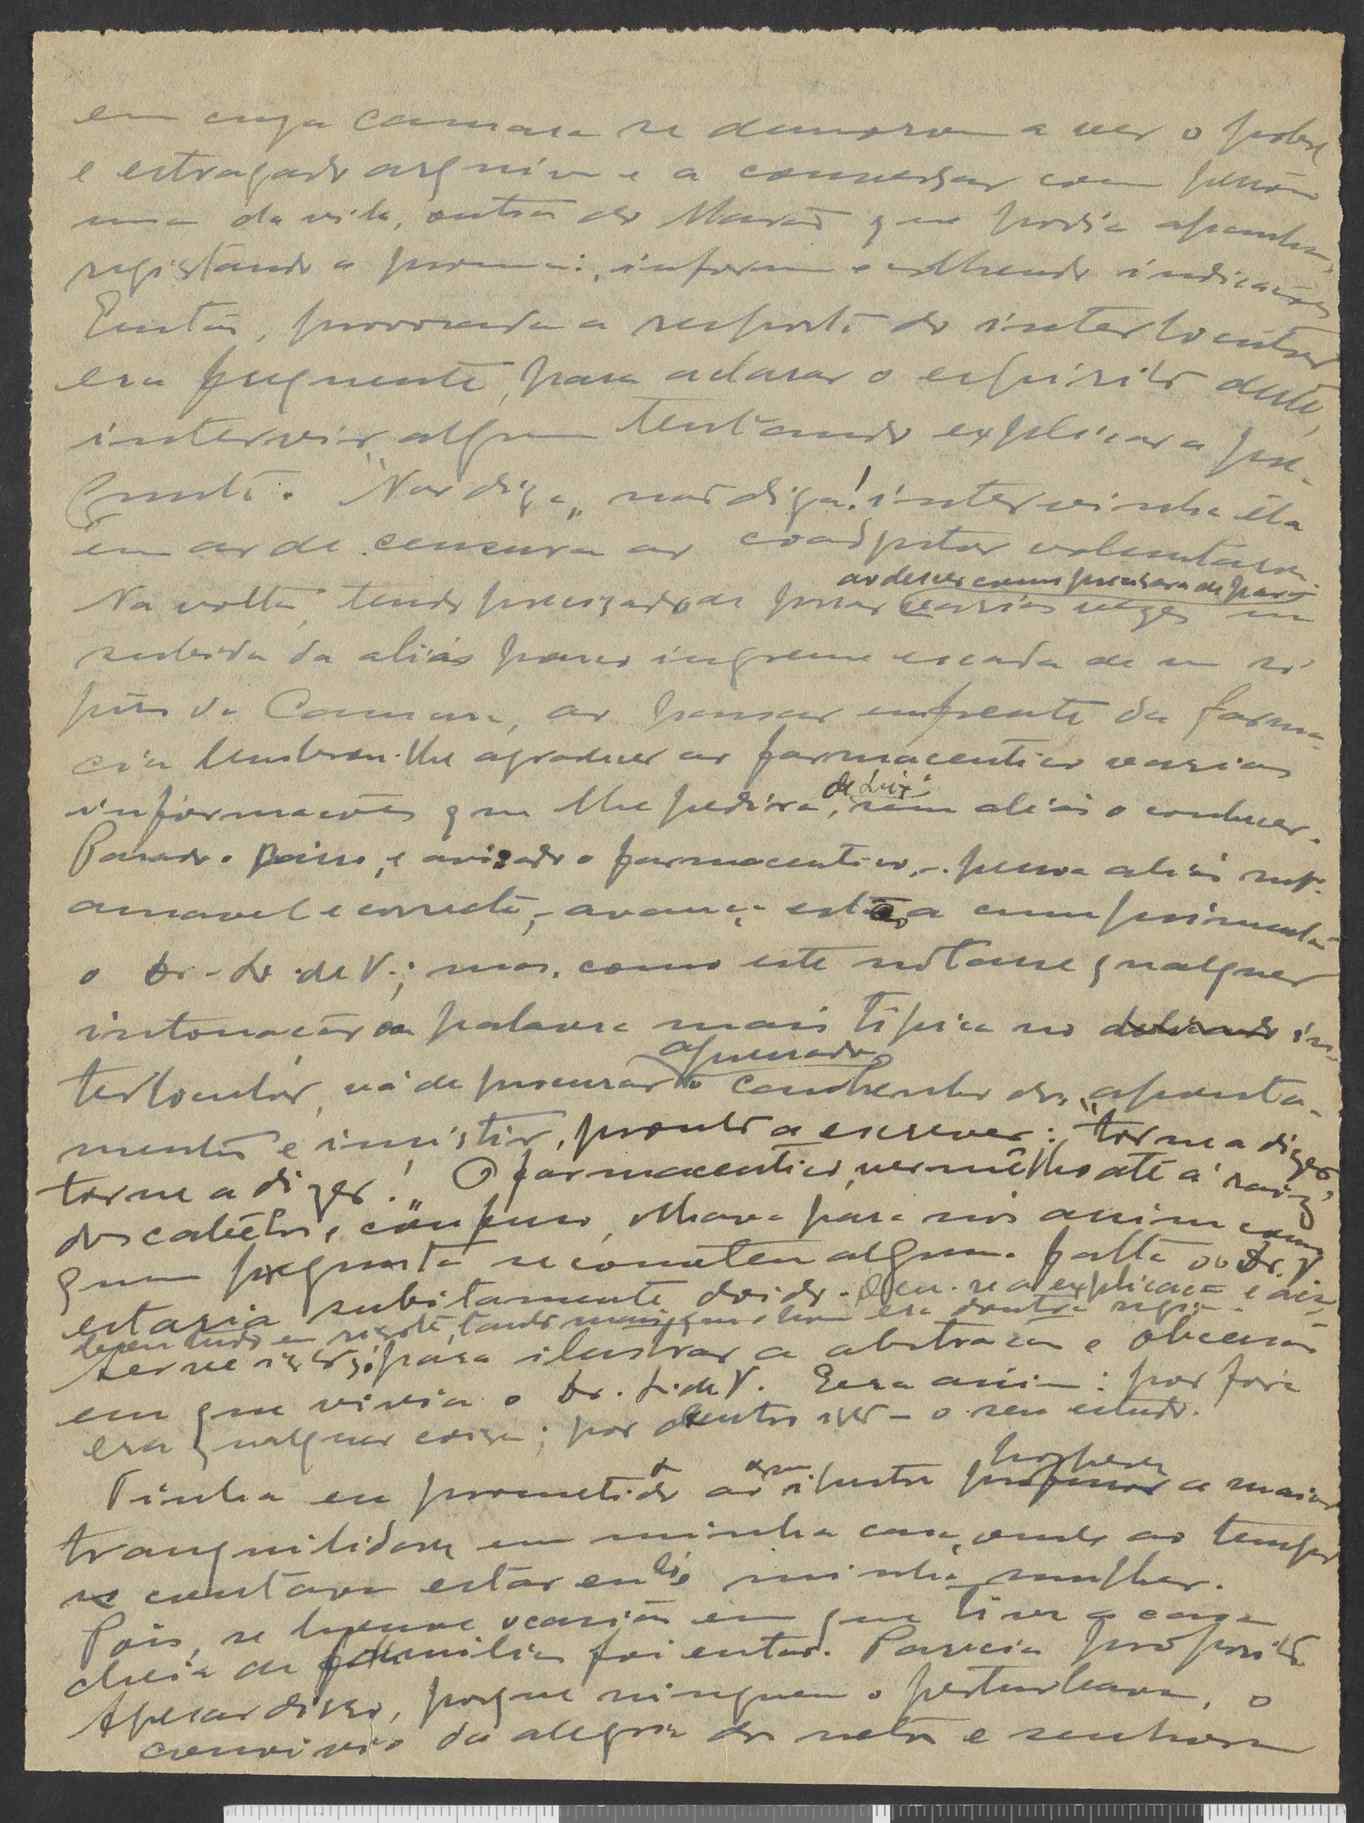 em cuja Camara se demorou a ver o pobre
e estragado arquivo e a conversar com pessoas
uma da vila, outra do Marão que podia apanhar,
registando a pronuncia, e colhendo indicações
Então, provocada a resposta do interlocutor
era frequente, para aclarar o espirito deste,
intervir alguem tentando explicar a per-
gunta. "Não diga„ não diga! intervinha êle
em ar de censura ao coadjutor voluntario.
ao descer como precisara de parar
Na volta, tendo precisado de parar varias vezes na
subida da aliás pouco ingreme escada de um só
piso da Camara, ao passar emfrente da farma-
cia lembrou-lhe agradecer ao farmaceutico varias
de Luis
informações que lhe pedira, sem aliás o conhecer.
Parado o carro, e avisado o farmaceutico, - pessoa aliás
amavel e correcta, - avança este a cumprimentar
o Dr. L. de V.; mas, como este notasse qualquer
intonação ou palavra mais tipica no in-
apressado
terlocutor, vá de procurar o canhenho dos aponta-
mentos e insistir, pronto a escrever: "torne a dizer,
torne a dizer!„ O farmaceutico, vermêlho até á raiz
dos cabêlos, confuso, olhava para nós assim como
quem pregunta se cometeu alguma falta ou o Dr. V
estaria subitamente doido. Deu-se a explicação e
tudo em tanto mais que o homem era doutra região.
Serve isto para ilustrar a abstração e obcessão
em que vivia o Dr. L. de V. Era assim: por fora
era qualquer coisa; por dentro isto - o seu estudo.
hospede
Tinha eu prometido ao ilustre professor a maior
tranquilidade em minha casa, onde ao tempo
se contava estar só minha mulher.
Pois, se houve ocasião em que tive a casa
cheia de familia foi então. Parecia proposito.
Apesar disso, porque ninguem o perturbava, o
convivio da alegria dos netos e senhora